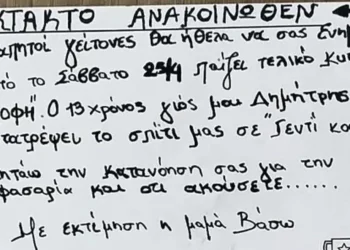 ΚΤΑΚΤΟ ΑΝΑΚΟΙΝΩΘΕΝ
απητοί γείτονες θα ήθελα να σας ενημ
το Σάββατο 25/4 παίζει τελικό Κυπ
οφή". Ο 13χρόνος γιός μου Δημήτρης
τατρέψει το σπίτι μας σε "Γεντί κο
ητάω την κατανόηση σας για την
φασαρία και ότι ακούσετε......
Με εκτίμηση η μαμά Βάσω